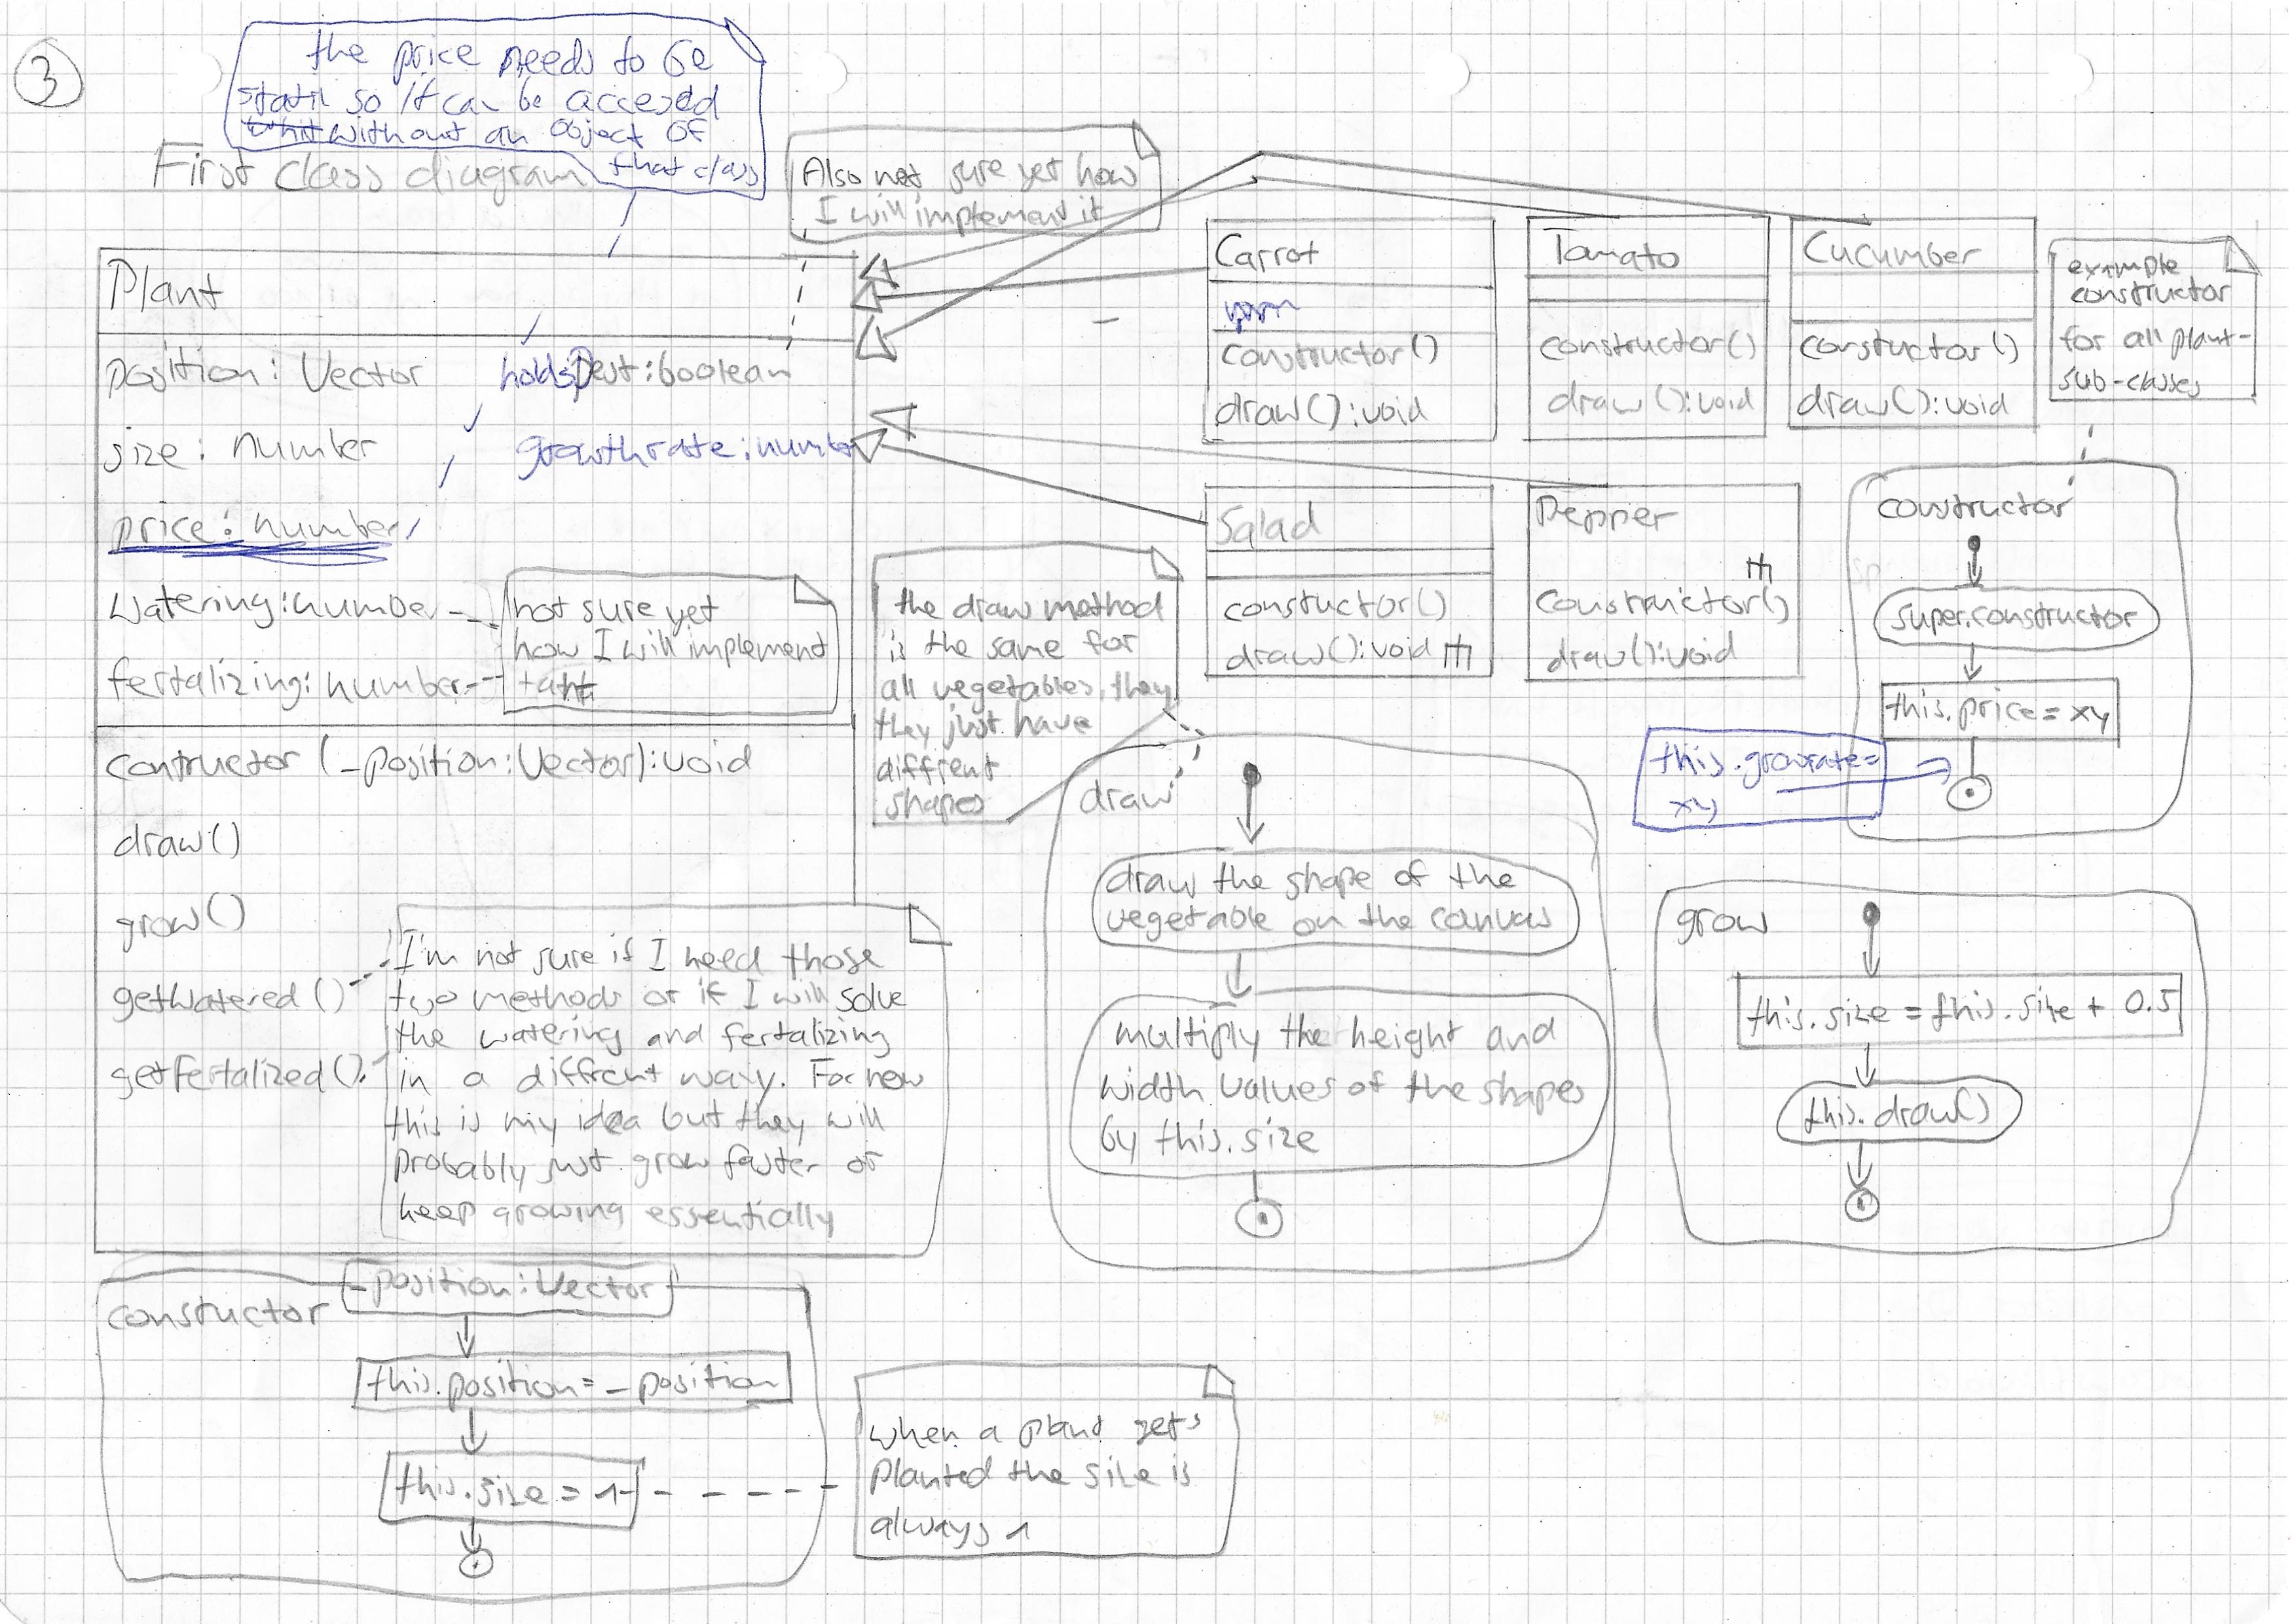 3
the price needs to be
static so it can be accesed
without an object of
that class
First class diagram
Also not sure yet how
I will implement it
Plant
position: Vector
holdsPest: boolean
size: number
growthrate: number
price: number
watering: number
fertalizing: number
not sure yet
how I will implement
contructor (_position: Vector): void
draw()
grow()
getWatered()
getFertalized()
I'm not sure if I need those
two methods or if I will solve
the watering and fertalizing
in a diffrent way. For now
this is my idea but they will
probably just grow faster or
keep growing essentially
Carrot
constructor()
draw(): void
Tomato
constructor()
draw(): void
Cucumber
constuctor()
draw(): void
example
constructor
for all plant-
sub-classes
Salad
constuctor()
draw(): void
Pepper
constructor()
draw(): void
the draw method
is the same for
all vegetables, they
they just have
diffrent
shapes
constructor
super.constructor
this.price = xy
this.growrate =
xy
draw
draw the shape of the
vegetable on the canvas
multiply the height and
width values of the shapes
by this.size
grow
this.size = this.size + 0.5
this.draw()
constuctor
_position: Vector
this.position = _position
this.size = 1
when a plant gets
planted the size is
always 1